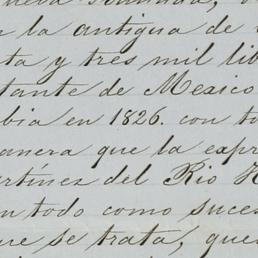 n la antigua de
ta y tres mil lib
tante de Mexico
bia en 1826. con to
anera que la expr
artínez del Rio H
n todo como suces
ue se trata, que